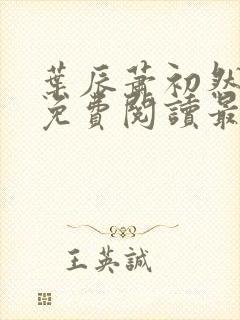 葉辰蕭初然
免費閱讀最
王英誠